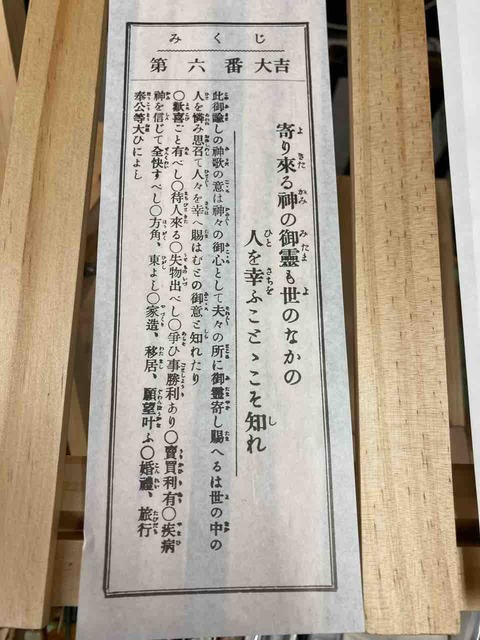 みくじ
第六番大吉
寄り來る神の御靈も世のなかの
人を幸ふことゝこそ知れ
此御諭しの神歌の意は神々の御心として夫々の所に御靈寄し賜へるは世の中の
人を憐み思召て人々を幸へ賜はむとの御意と知れたり
○歡喜ごと有べし○待人來る○失物出べし○爭ひ事勝利あり○賣買利有○疾病
神を信じて全快すべし○方角、東よし○家造、移居、願望叶ふ○婚禮、旅行
奉公等大ひによし